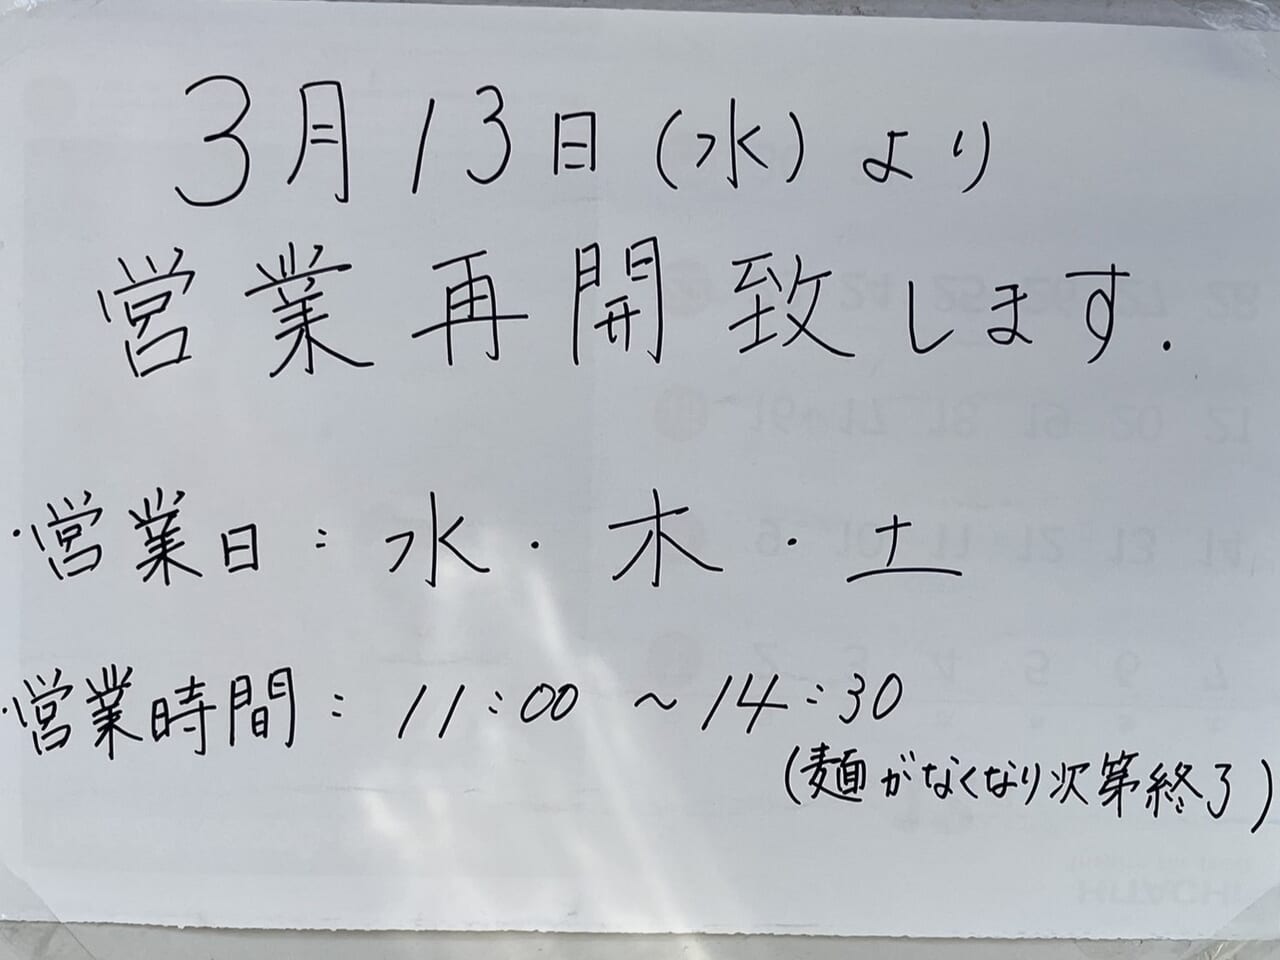 3月13日(水)より
営業再開致します.
・営業日:水・木・土
・営業時間:11:00 ~14:30
(麺がなくなり次第終了)